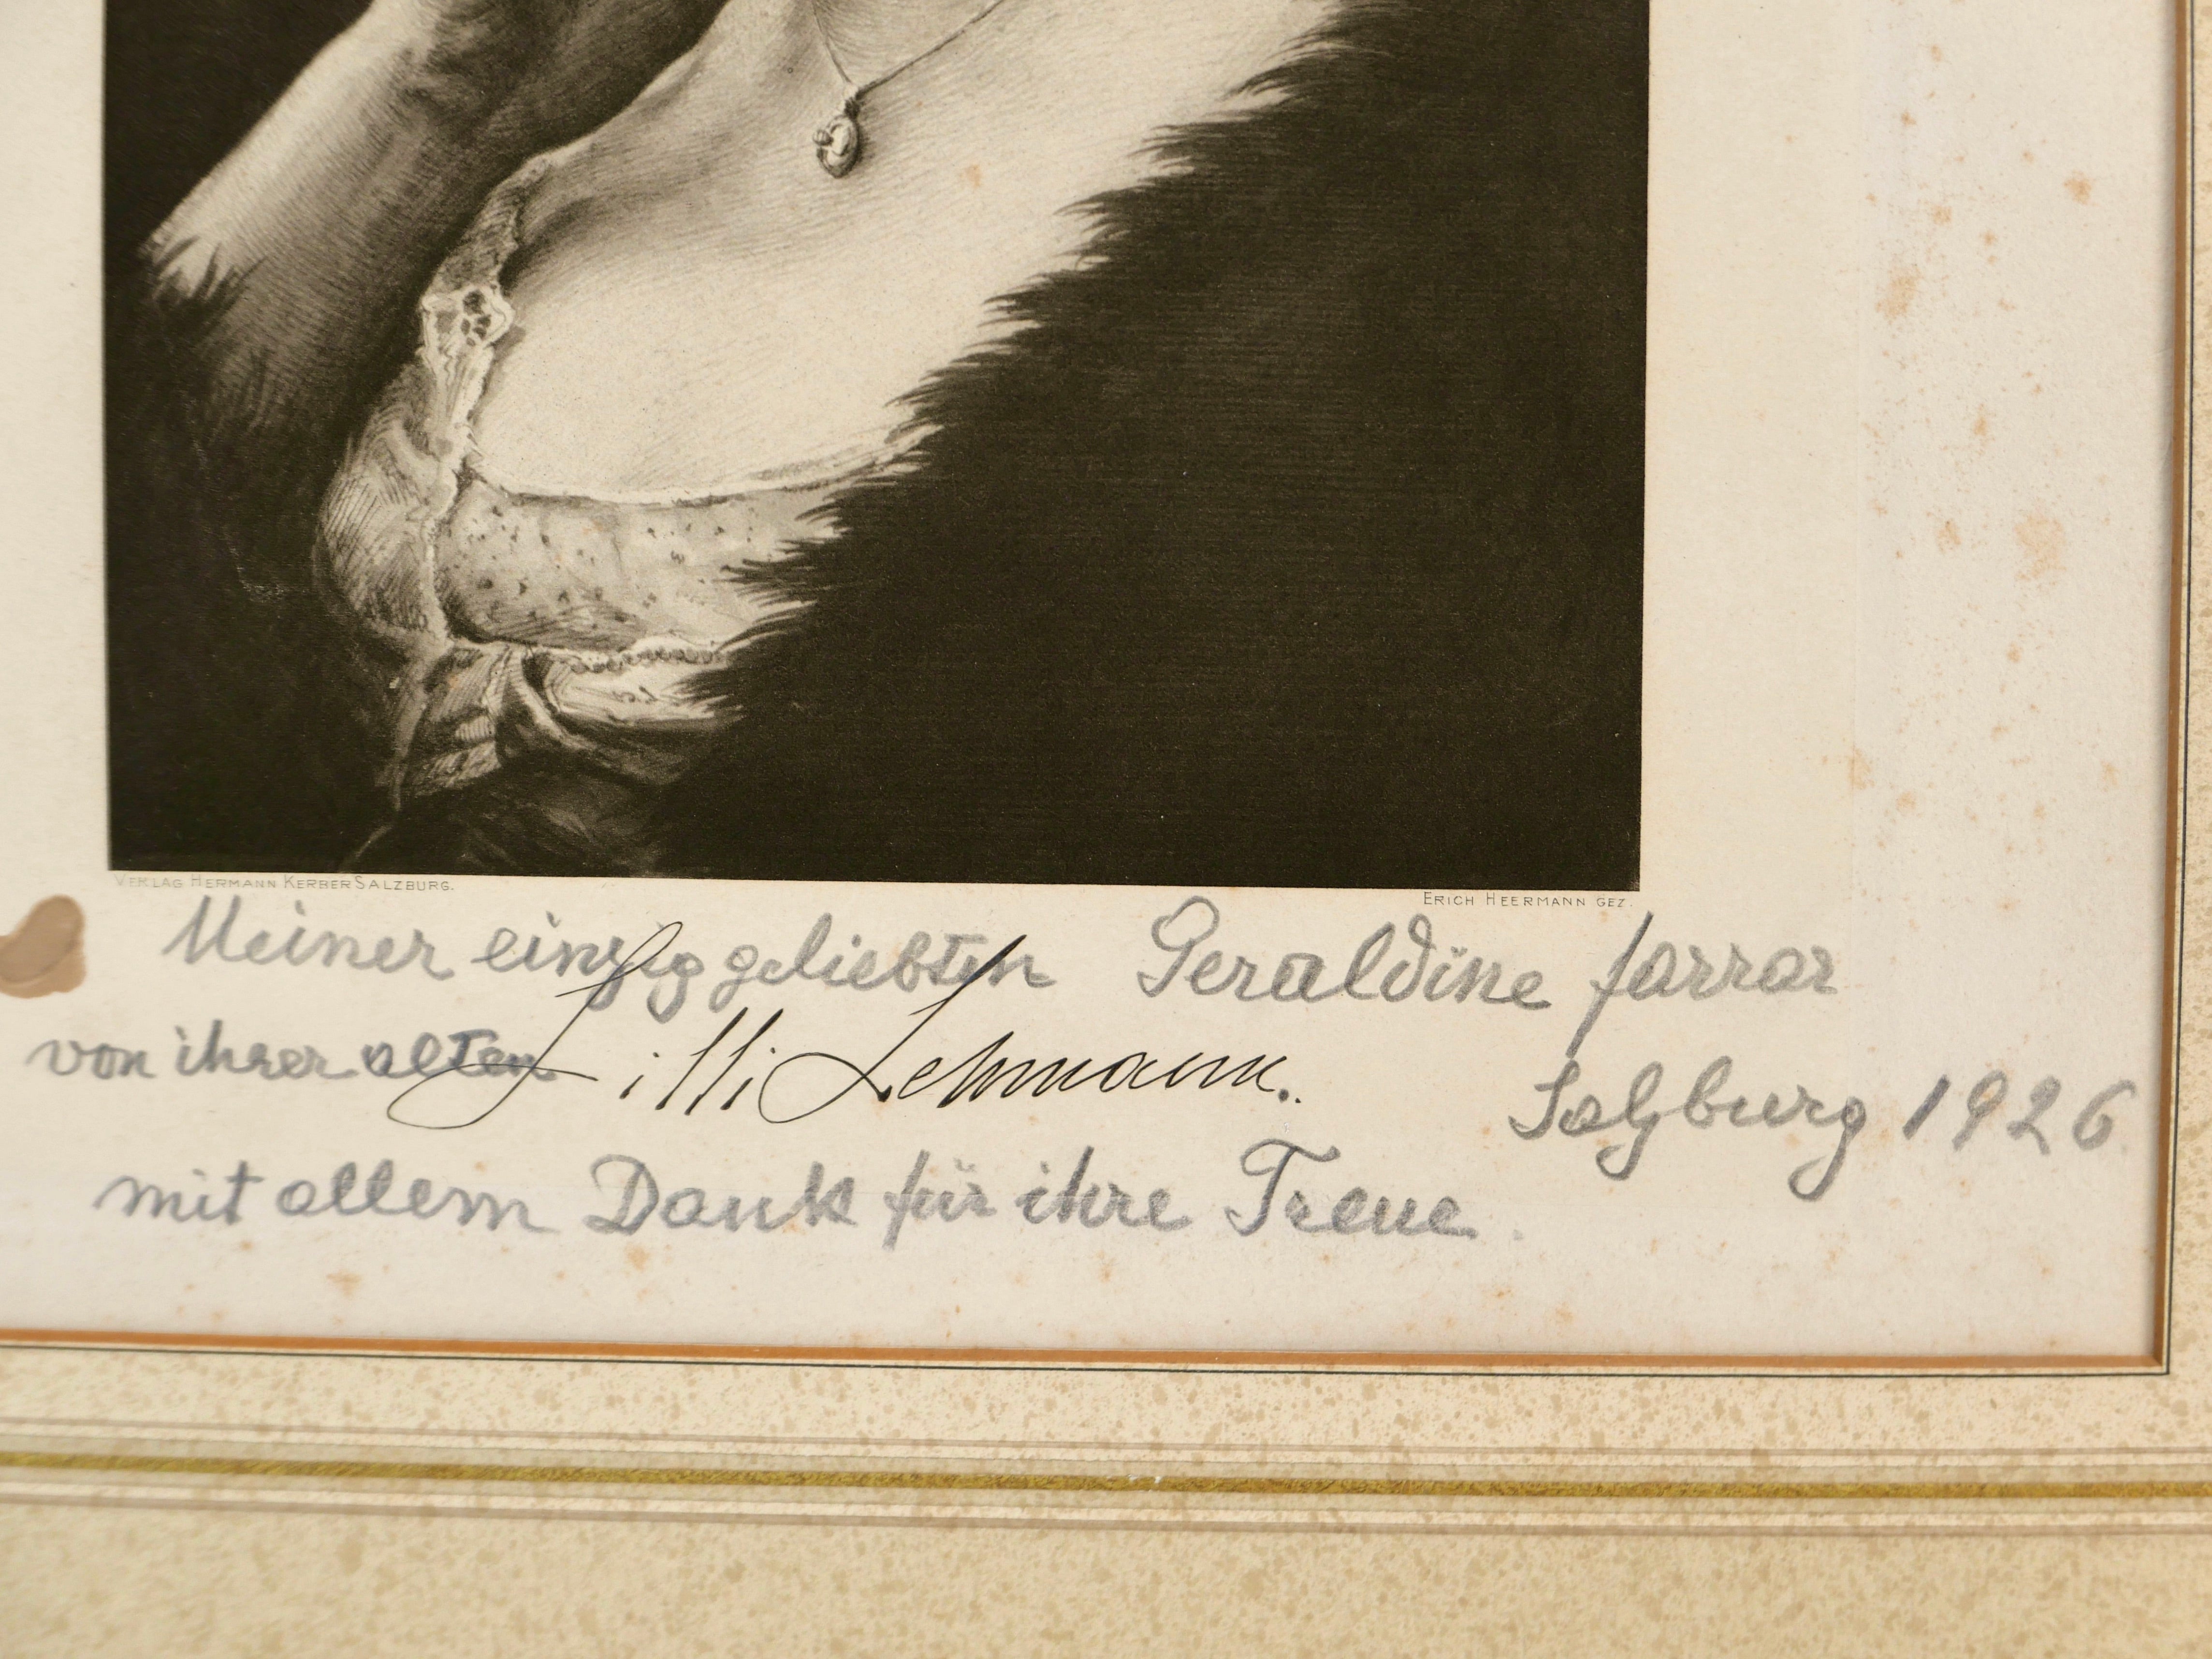 VERLAG HERMANN KERBER SALZBURG.
ERICH HEERMANN GEZ.
Meiner einzig geliebten Geraldine farrar
von ihrer alten Lilli Lehmann.
Salzburg 1926
mit allem Dank für ihre Treue.